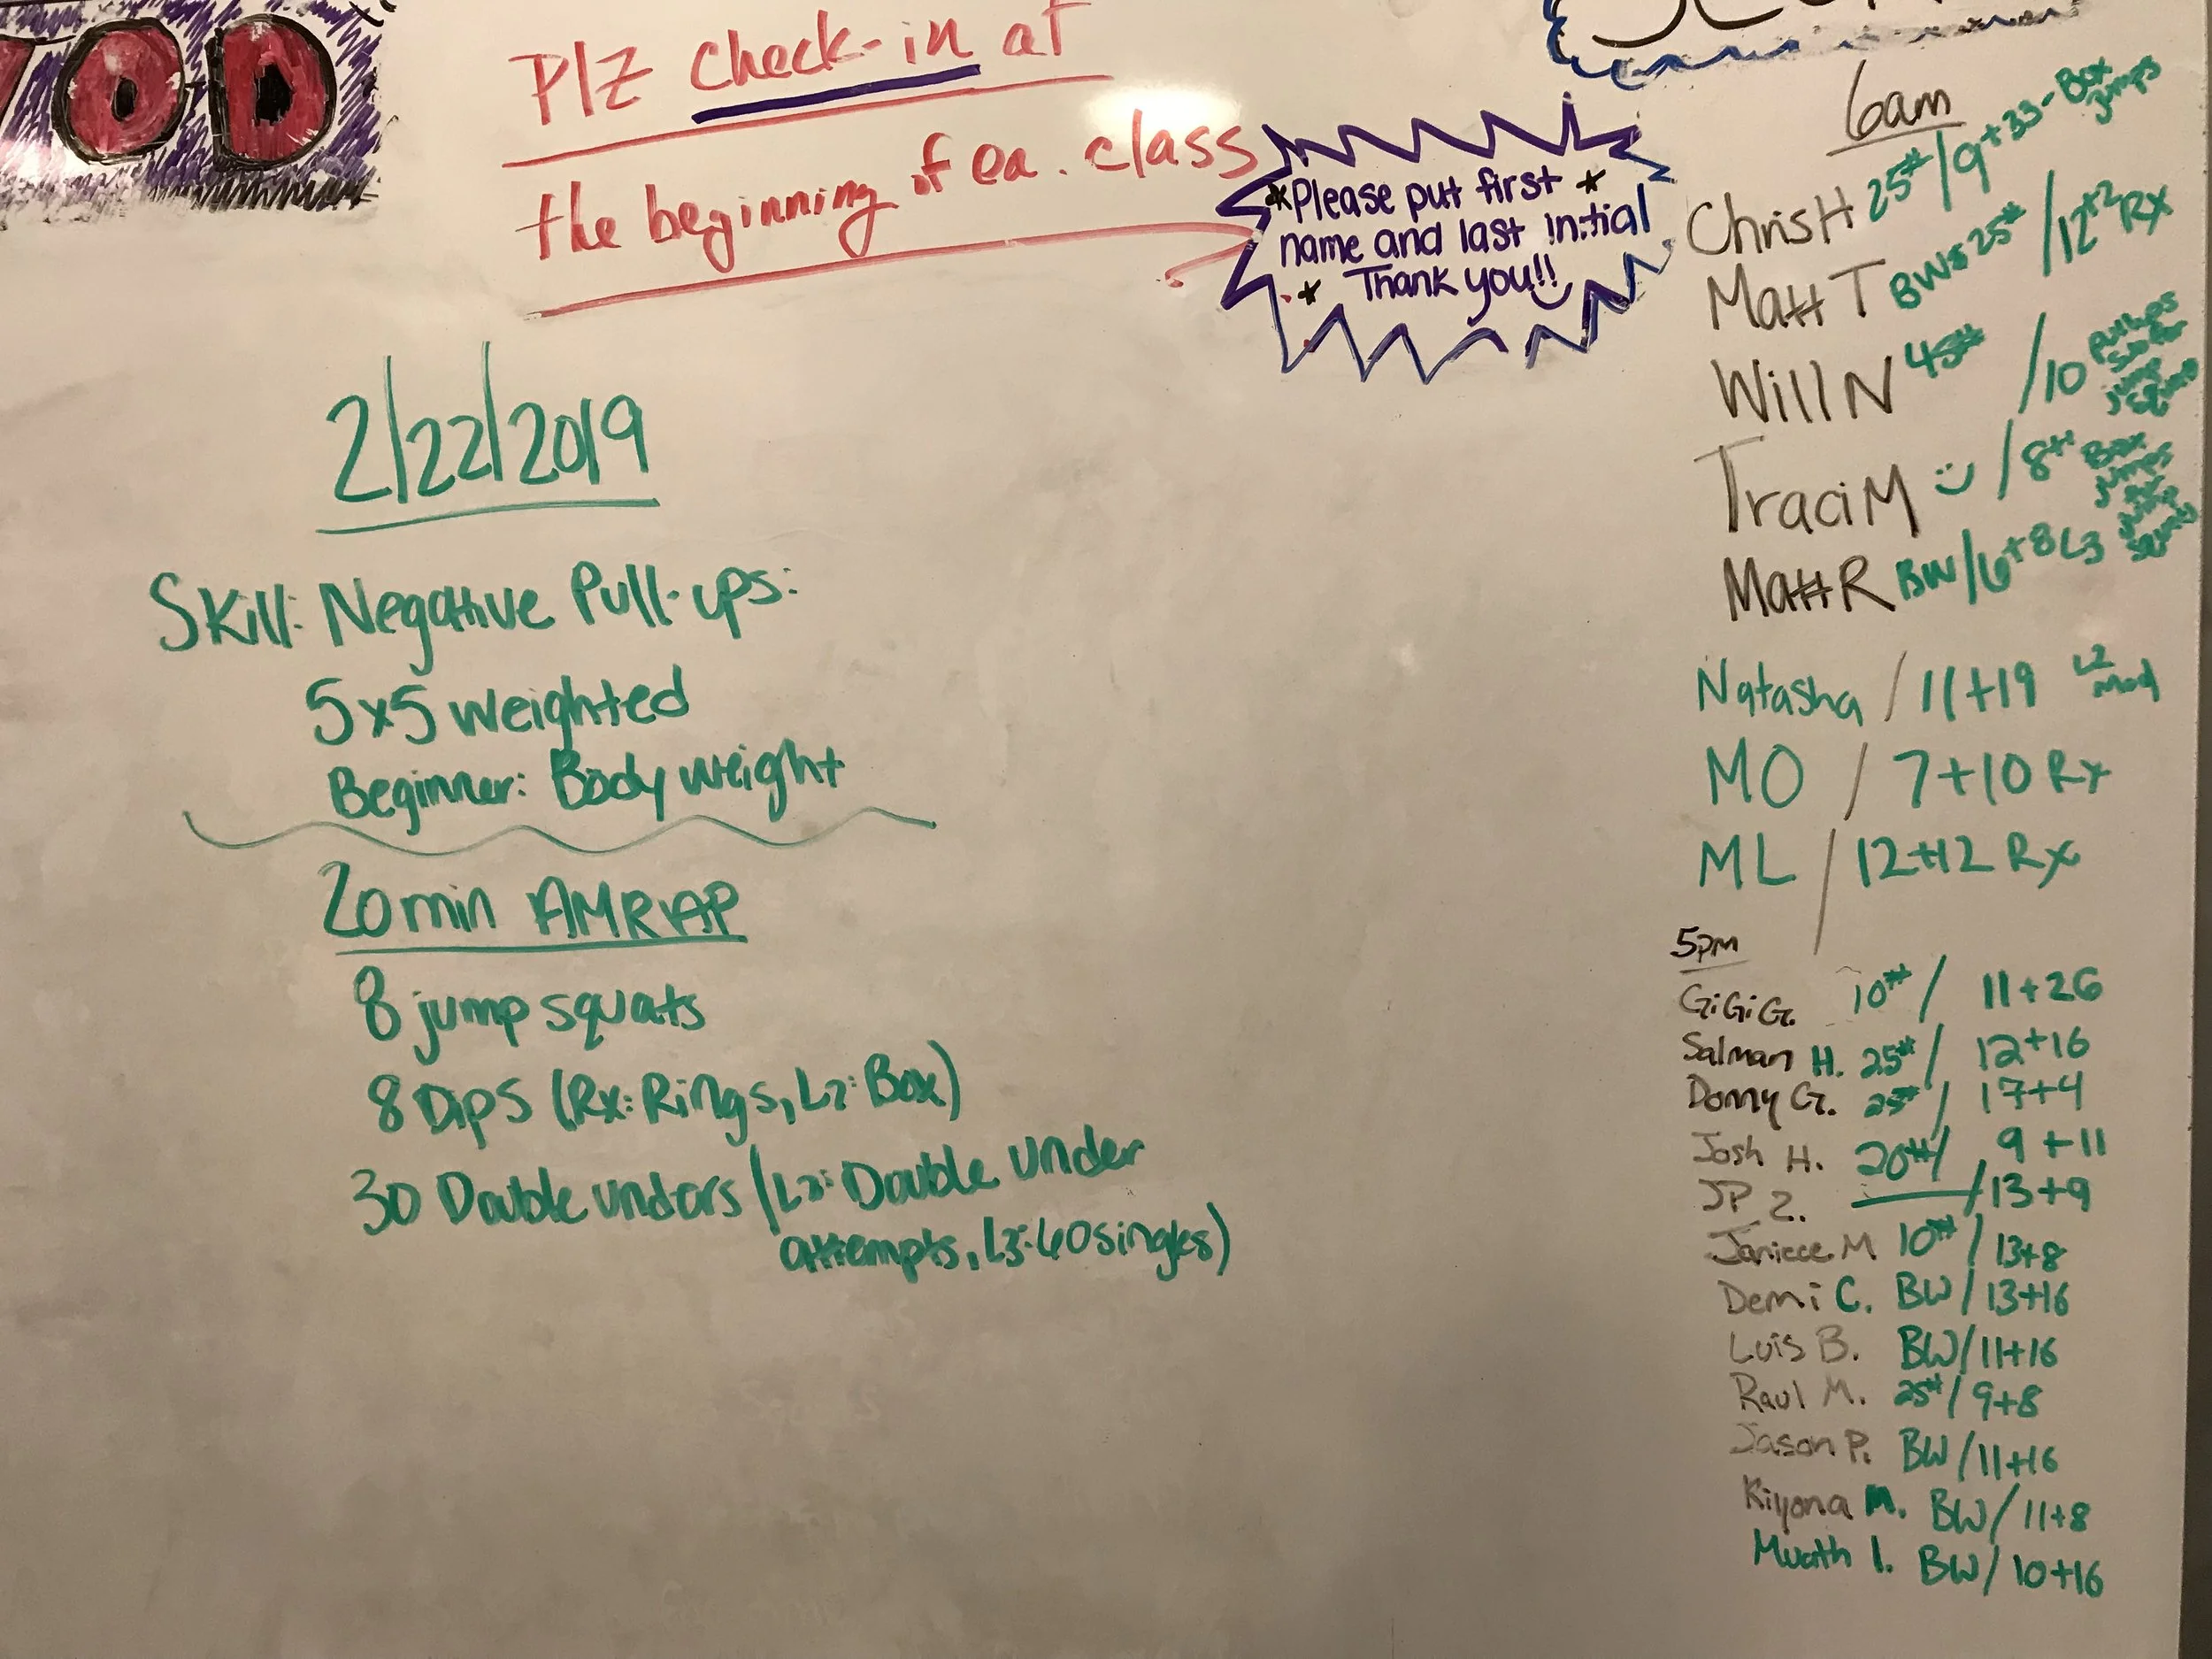 OD
Plz check-in at
the beginning of ea. class
*Please put first *
name and last initial
* Thank you!!
2/22/2019
Skill: Negative Pull-ups:
5x5 weighted
Beginner: Body weight
20 min AMRAP
8 jump squats
8 Dips (Rx: Rings, L2: Box)
30 Double unders (L2: Double under
attempts, L3: 60 singles)
6am
Chris H 25# / 9+33 - Box jumps
Matt T BW & 25# / 12+2 Rx
Will N 45# / 10 jump
Traci M / 8+1 Box jumps
Matt R BW / 6+8 L3
Natasha / 11+19 L2 mod
MO / 7+10 Rx
ML / 12+12 Rx
5pm
GiGi G. 10# / 11+26
Salman H. 25# / 12+16
Donny G. 25# / 17+4
Josh H. 20# / 9+11
JP Z. / 13+9
Janiece M 10# / 13+8
Demi C. BW / 13+16
Luis B. BW / 11+16
Raul M. 25# / 9+8
Jason P. BW / 11+16
Kiyona M. BW / 11+8
Muath I. BW / 10+16